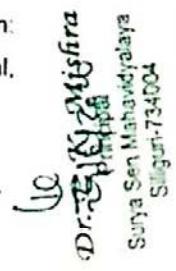 Dr. Mishra
Principal
Surya Sen Mahavidyalaya
Siliguri-734004